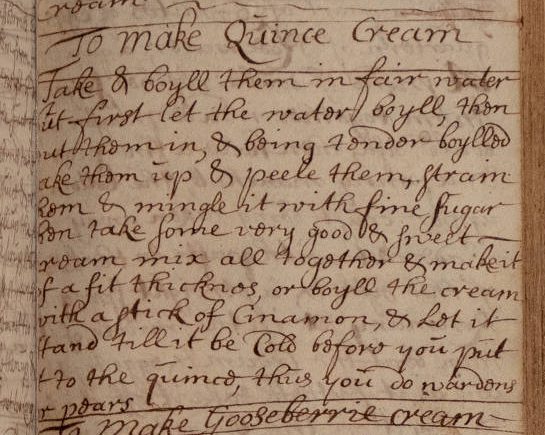 ream
To Make Quince Cream
Take & boyll them in fair water
ut first let the water boyll, then
ut them in, & being tender boylled
ake them up & peele them, strain
hem & mingle it with fine sugar
hen take some very good & sweet
ream mix all together & make it
f a fit thicknes, or boyll the cream
with a stick of Cinamon, & Let it
tand till it be Cold before you put
t to the quince, thus you do wardens
r pears
To Make Gooseberrie cream